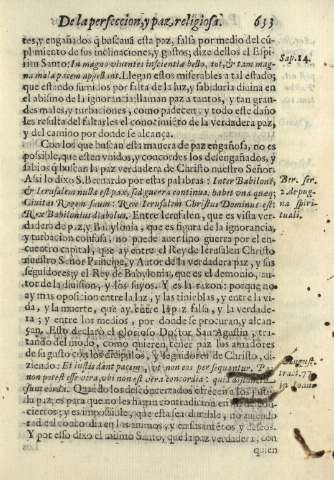 De la perfeccion, y paz, religiosa. 633
res, y engañados q̃ buscauã esta paz, falsa por medio del cũ-
plimiento de sus inclinaciones, y gustos, dize dellos el Espi-
ritu Santo: In magno viuentes inscientiæ bello, tot, & tam mag-
na mala pacem appellant. Llegan estos miserables a tal estado,
que estando sumidos por falta de la luz, y sabiduria diuina en
el abismo de la ignorancia llaman paz a tantos, y tan gran-
des males, y turbaciones, como padecen, y todo este daño
les resulta del faltarles el conocimiẽto de la verdadera paz,
y del camino por donde se alcança.
Sap. 14.
Con los que buscan esta manera de paz engañosa, no es
possible, que estẽ vnidos, y concordes los desengañados, y
sabios q̃ buscan la paz verdadera de Christo nuestro Señor.
Assi lo dixo S. Bernardo por estas palabras: Inter Babilonẽ,
& Ierusalem nulla est pax, sed guerra continua, habet vna quæq;
Ciuitas Regem suum: Rex Ierusalem Christus Dominus est:
Rex Babilonius diabolus. Entre Ierusalen, que es vista ver-
dadera de paz, y Babylonia, que es figura de la ignorancia,
y turbacion confusa, no puede auer sino guerra por el en-
cuentro capital, que ay entre el Rey de Ierusalen Christo
nuestro Señor Principe, y Autor de la verdadera paz, y sus
seguidores; y el Rey de Babylonia, que es el demonio, au-
tor de la diuision, y los suyos. Y es la razon: porque no
ay mas oposicion entre la luz, y las tinieblas, y entre la vi-
da, y la muerte, que ay entre la paz falsa, y la verdade-
ra; y entre los medios, por donde se procuran, y alcan-
çan. Esto declarò el glorioso Dotor San Agustin, tra-
tando del modo, como quieren tener paz los amadores
de su gusto con los discipulos, y seguidores de Christo, di-
ziendo: Et iusti dant pacem, vt non eos persequantur.
non potest esse vera, vbi non est vera concordia: quia
Quando los desconcertados ofrecen a los justos
la paz; es para que no les hagan contradicion en sus des-
ciertos; y es impossible, que esta sea durable, no auiendo
radical concordia en los animos, y en sus intẽtos y deseos.
Y por esso dixo el mismo Santo, que la paz verdadera, con
quien
Ber. ser.
2. de pug-
na spiri-
tuali.
August.
tract. 77
in Ioan.